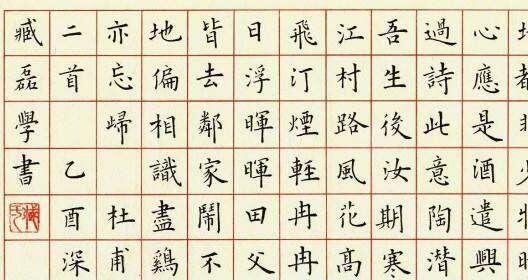 心應是酒遣興
過詩此意陶潛
吾生後汝期寒
江村路風花髙
飛汀煙輕冉冉
日浮暉暉田父
皆去鄰家鬧不
地偏相識盡鷄
亦忘歸 杜甫
二首 乙酉深
臧磊學書